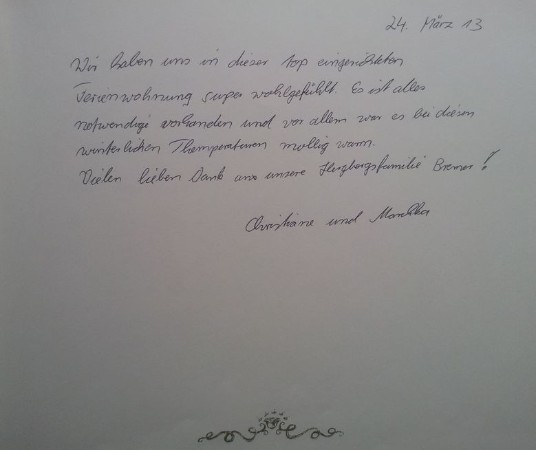 24. März 13
Wir haben uns in dieser top eingerichteten
Ferienwohnung super wohlgefühlt. Es ist alles
notwendige vorhanden und vor allem war es bei diesen
winterlichen Themperaturen mollig warm.
Vielen lieben Dank an unsere Herbergsfamilie Bremer!
Christiane und